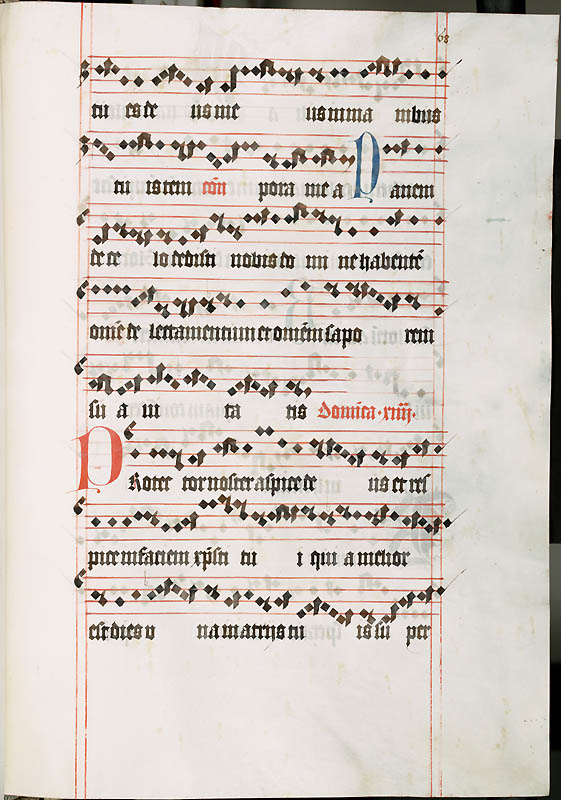 68
tu es de us me us in ma nibus
tu is tem con pora me a Panem
de ce lo dedisti nobis do mi ne habentē
omē de lectamentum et omēm sapo rem
su a ui ta tis Domīca xiiij.
Protec tor noster aspice de us et res
pice in faciem xp̄sti tu i qui a melior
est dies v na in atrijs tu is su per